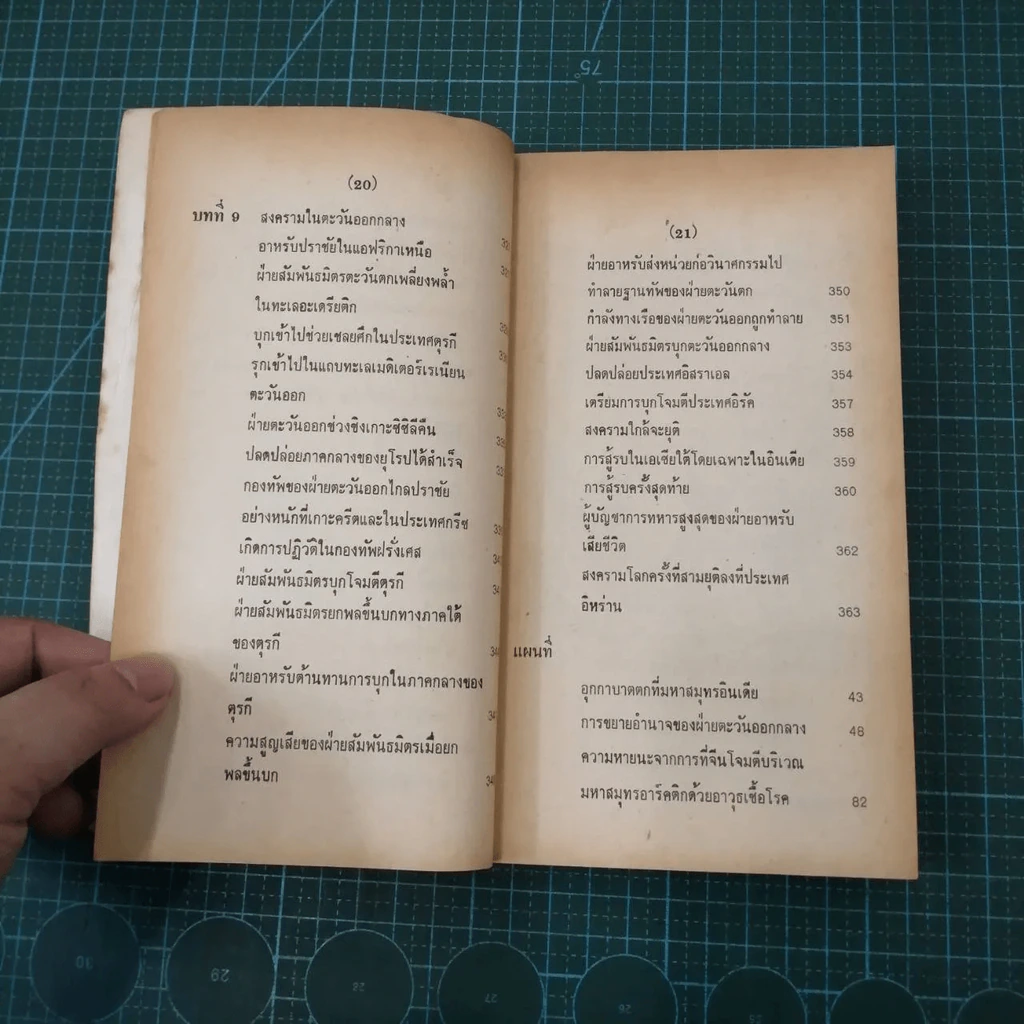 (20)
บทที่ 9 สงครามในตะวันออกกลาง
อาหรับปราชัยในแอฟริกาเหนือ
ฝ่ายสัมพันธมิตรตะวันตกเพลี่ยงพล้ำ
ในทะเลอะเดรียติก
บุกเข้าไปช่วยเชลยศึกในประเทศตุรกี
รุกเข้าไปในแถบทะเลเมดิเตอร์เรเนียน
ตะวันออก
ฝ่ายตะวันออกช่วงชิงเกาะซิซิลีคืน
ปลดปล่อยภาคกลางของยุโรปได้สำเร็จ
กองทัพของฝ่ายตะวันออกไกลปราชัย
อย่างหนักที่เกาะครีตและในประเทศกรีซ
เกิดการปฏิวัติในกองทัพฝรั่งเศส
ฝ่ายสัมพันธมิตรบุกโจมตีตุรกี
ฝ่ายสัมพันธมิตรยกพลขึ้นบกทางภาคใต้
ของตุรกี
ฝ่ายอาหรับต้านทานการบุกในภาคกลางของ
ตุรกี
ความสูญเสียของฝ่ายสัมพันธมิตรเมื่อยก
พลขึ้นบก
(21)
ฝ่ายอาหรับส่งหน่วยก่อวินาศกรรมไป
ทำลายฐานทัพของฝ่ายตะวันตก 350
กำลังทางเรือของฝ่ายตะวันออกถูกทำลาย 351
ฝ่ายสัมพันธมิตรบุกตะวันออกกลาง 353
ปลดปล่อยประเทศอิสราเอล 354
เตรียมการบุกโจมตีประเทศอิรัค 357
สงครามใกล้จะยุติ 358
การสู้รบในเอเซียใต้โดยเฉพาะในอินเดีย 359
การสู้รบครั้งสุดท้าย 360
ผู้บัญชาการทหารสูงสุดของฝ่ายอาหรับ
เสียชีวิต 362
สงครามโลกครั้งที่สามยุติลงที่ประเทศ
อิหร่าน 363
แผนที่
อุกกาบาตตกที่มหาสมุทรอินเดีย 43
การขยายอำนาจของฝ่ายตะวันออกกลาง 48
ความหายนะจากการที่จีนโจมตีบริเวณ
มหาสมุทรอาร์คติกด้วยอาวุธเชื้อโรค 82
75°
30
29
28
27
26